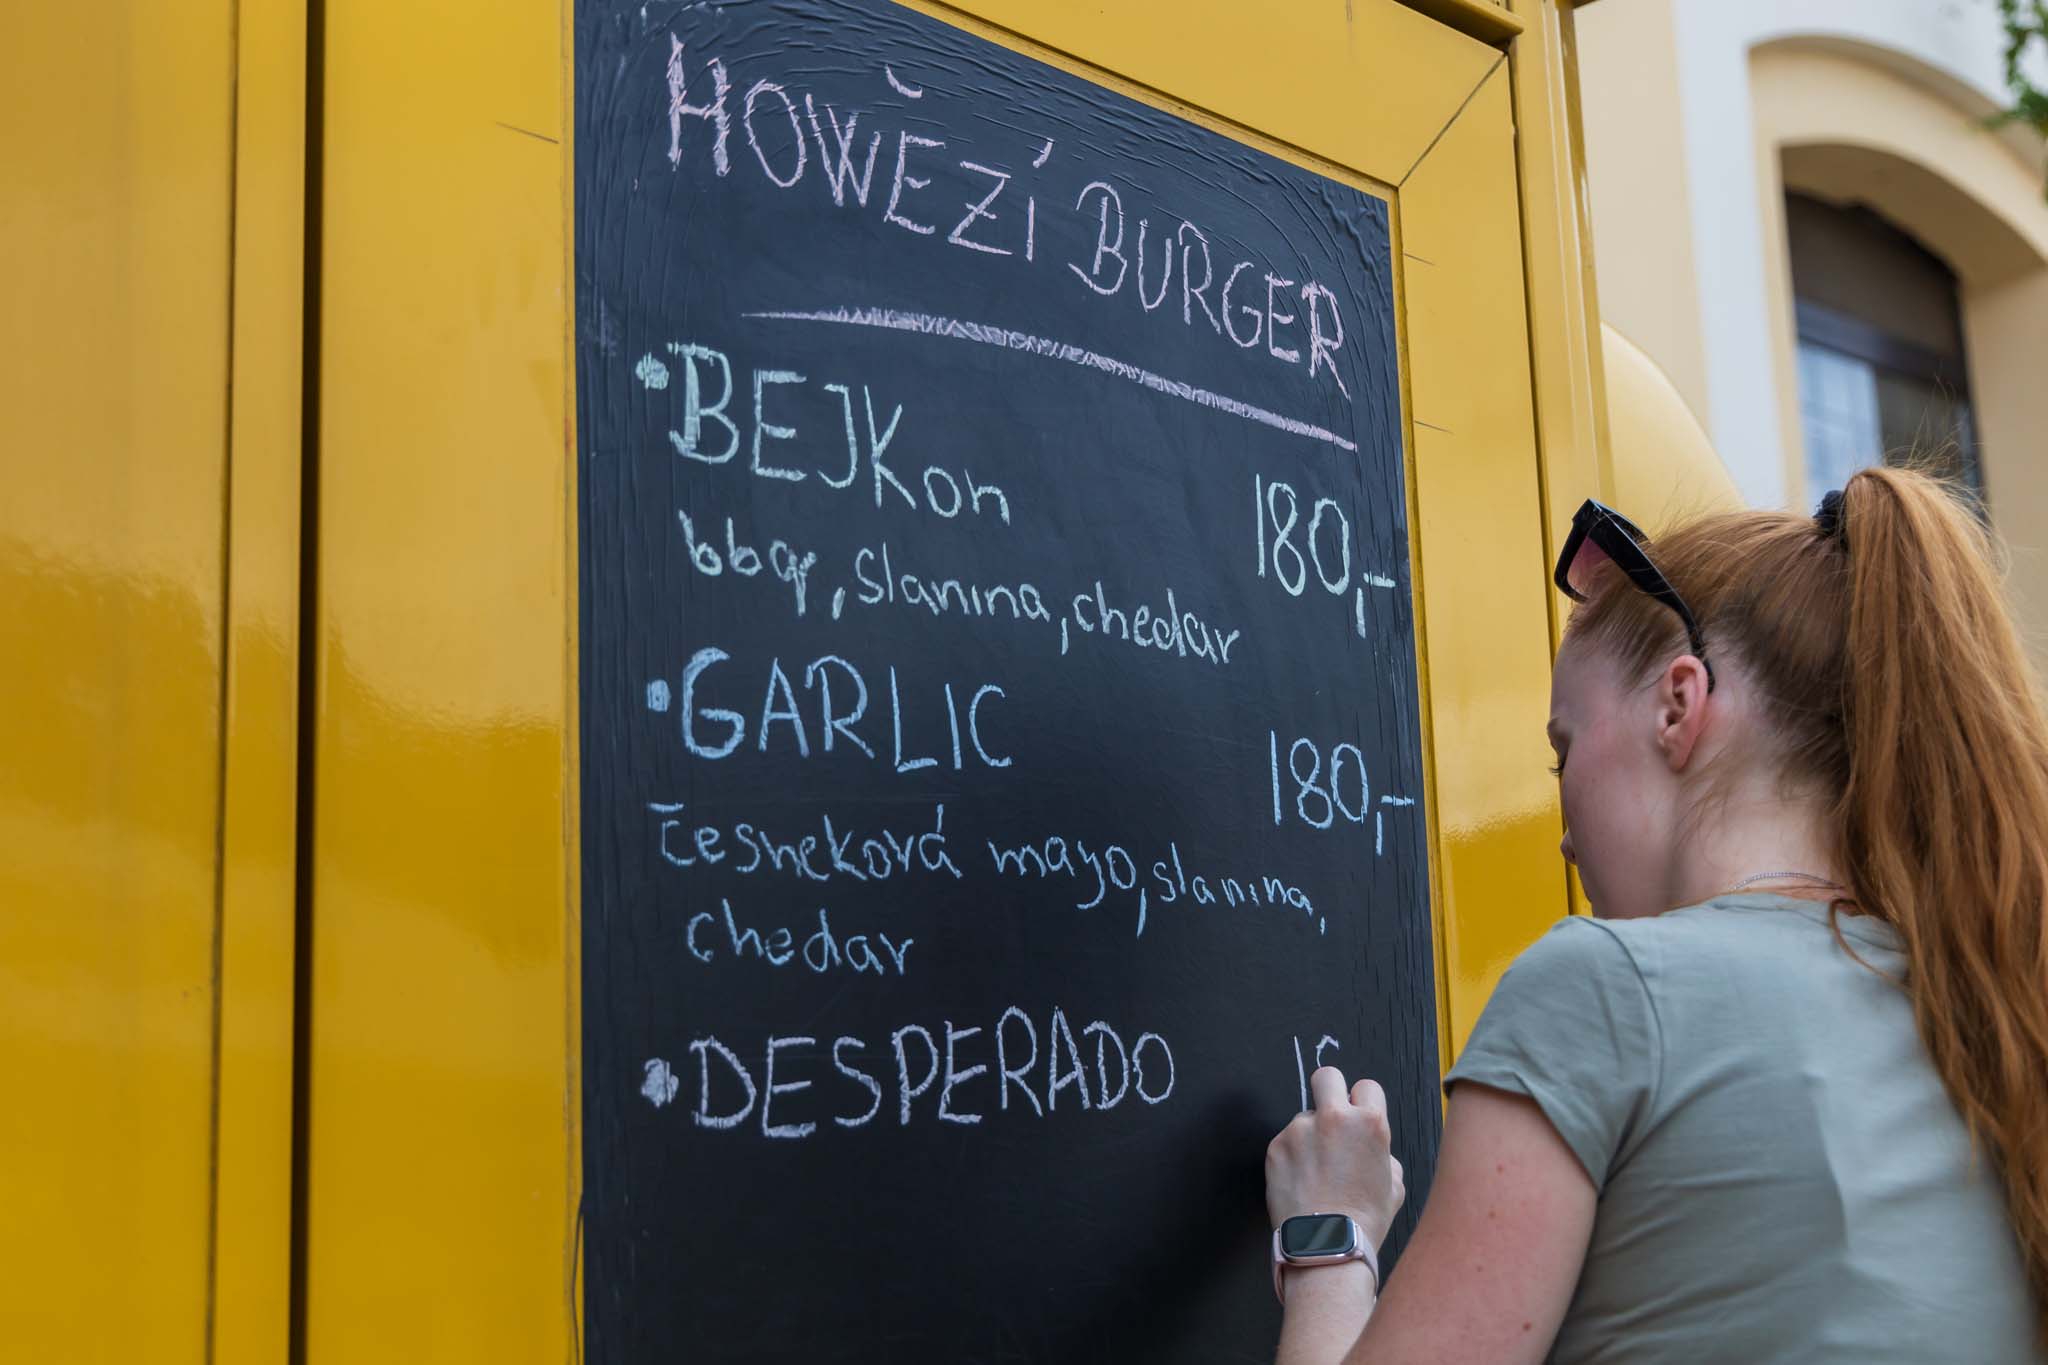 HOWĚZÍ BURGER
• BEJKon 180,-
bbq, slanina, chedar
• GARLIC 180,-
česneková mayo, slanina,
chedar
• DESPERADO 1